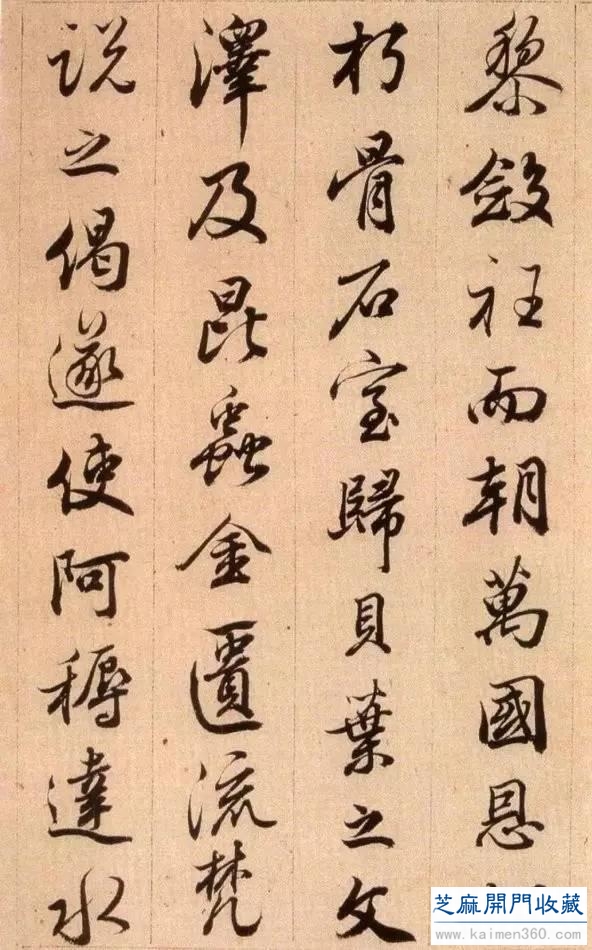 黎斂衽而朝萬國恩
朽骨石室歸貝葉之文
澤及昆蟲金匱流梵
説之偈遂使阿耨達水
芝麻開門收藏
www.kaimen360.com